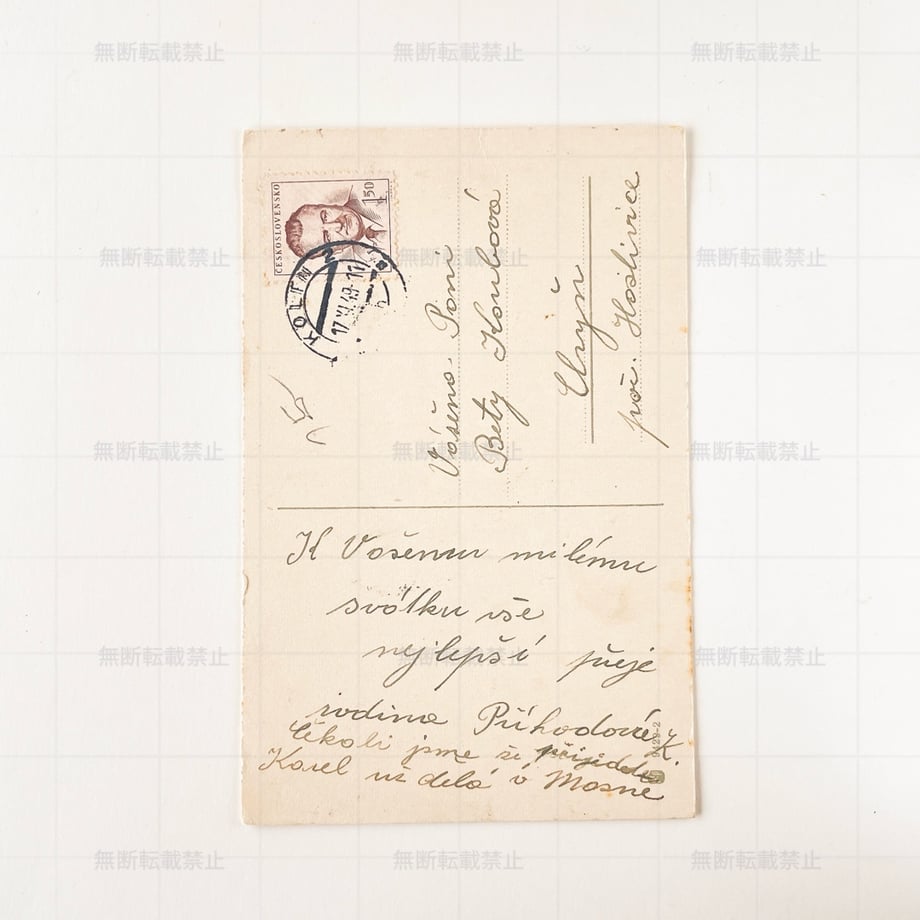 ČESKOSLOVENSKO
1.50
KOLÍN
17.XI.49-11
Vážená Paní
Bety Houbová
poš. Hostivice
K Vašemu milému
svátku vše
nejlepší přeje
rodina Příhodová K.
Čekali jsme že přijedete
Karel už dělá v
9129-2
無断転載禁止 無断転載禁止 無断転載禁止
無断転載禁止 無断転載禁止 無断転載禁止
無断転載禁止 無断転載禁止 無断転載禁止
無断転載禁止 無断転載禁止 無断転載禁止
無断転載禁止 無断転載禁止 無断転載禁止